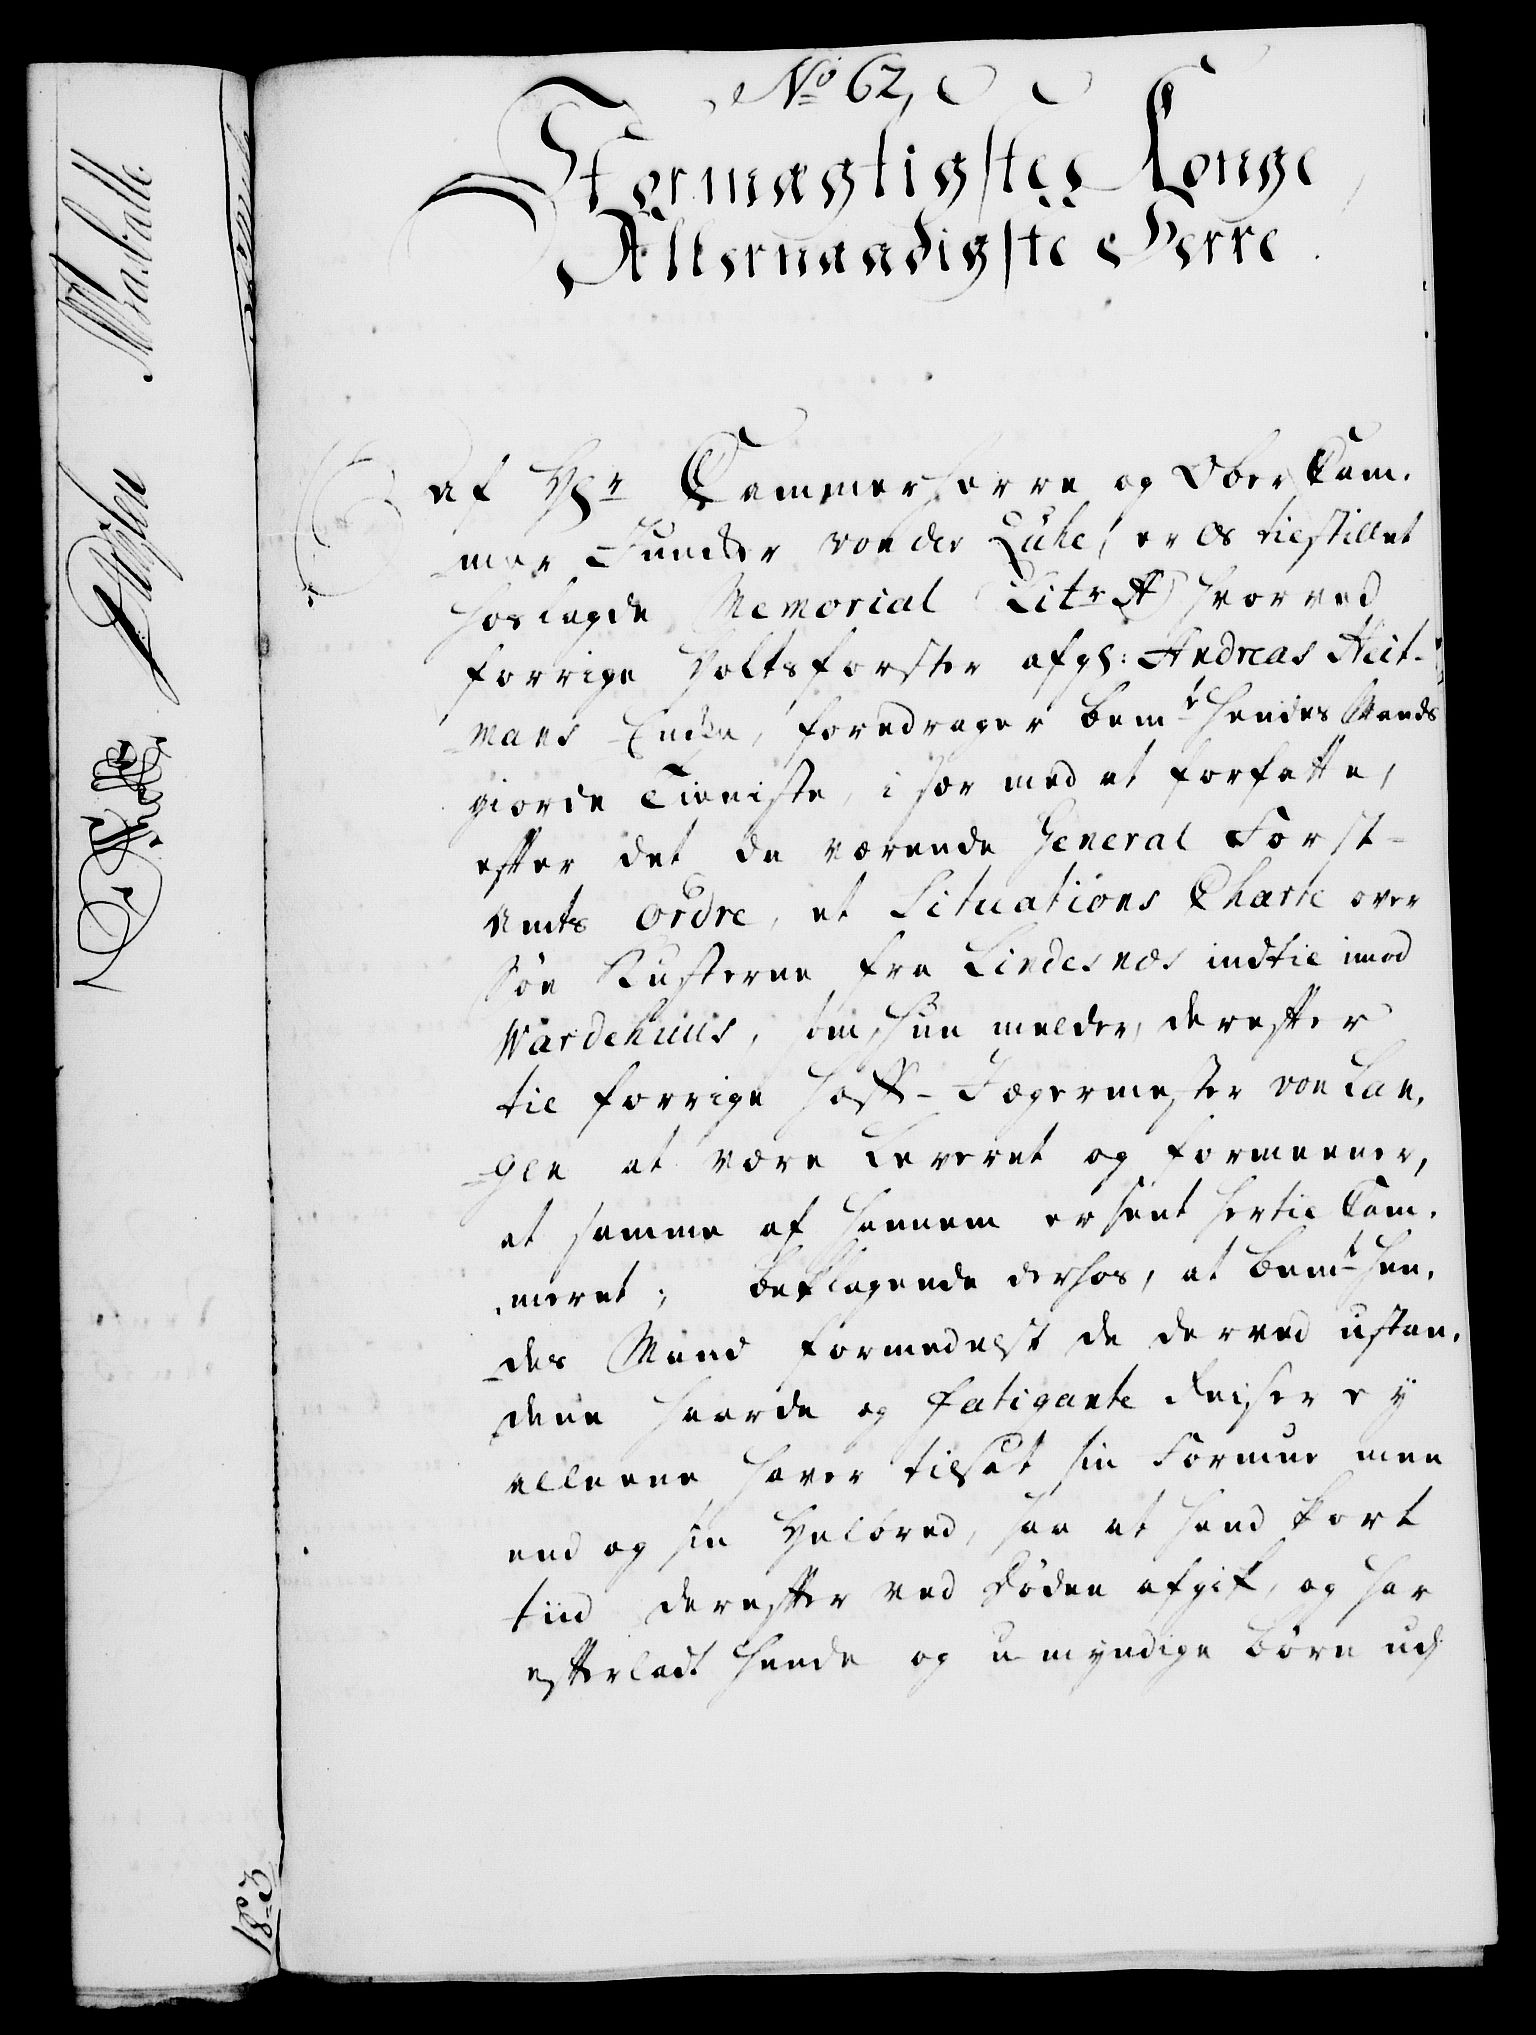 No 62,
Stormægtigste Konge
Allernaadigste Herre.
af Hr Cammerherre og Ober Cam-
mer Juncker von der Lühe, er os tilstillet
hoslagde Memorial Litr A hvorved
forrige Holtsforster afg: Andreas Heit-
mans Encke, foredrager bemte hendes Mands
giorde Tieniste, i sær med at forfatte,
efter det da værende General Forst-
Amts Ordre, et Situations Charte over
Søe Kusterne fra Lindesnæs indtil imod
Wardehuus, som hun melder, derefter
til forrige Hoff-Jægermester von Lan-
gen at være leveret og formeener,
at samme af hannem er sent hertil Cam-
meret; beklagende derhos, at bemte hen-
des Mand formedelst de derved udstan-
dene haarde og fatigante Reiser ey
alleene haver tilsat sin Formue men
end og sin Helbred, saa at hand kort
tiid derefter ved Døden afgik, og har
efterladt hende og umyndige Børn udj